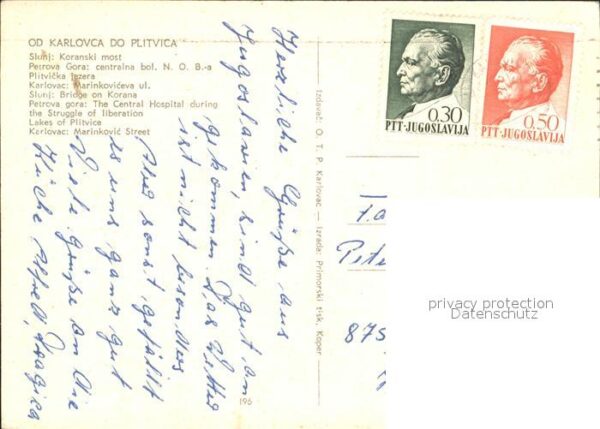 OD KARLOVCA DO PLITVICA
Slunj: Koranski most
Petrova Gora: centralna bol. N. O. B.-a
Plitvička jezera
Karlovac: Marinkovićeva ul.
Slunj: Bridge on Korana
Petrova gora: The Central Hospital during
the Struggle of liberation
Lakes of Plitvice
Karlovac: Marinković Street
Herzliche Grüße aus
Jugoslawien, sind gut an
gekommen. Das Wetter
ist nicht besonders
Aber sonst gefällt
es uns ganz gut
Viele Grüße an Die
Alfred, Dragica
Izdavač: O. T. P. Karlovac — Izrada: Primorski tisk, Koper
196
0.30
PTT·JUGOSLAVIJA
0.50
PTT·JUGOSLAVIJA
875
privacy protection
Datenschutz